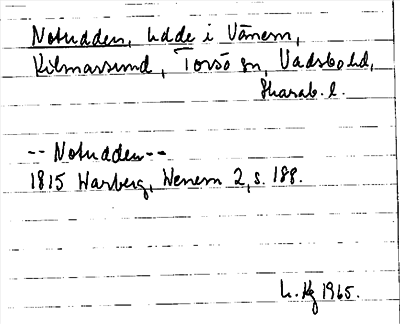 Notudden, udde i Vänern,
Kilmarsund, Torsö sn, Vadsbo hd,
Skarab. l.
-- Notudden --
1815 Warberg, Wenern 2, s. 188.
L. Hg 1965.